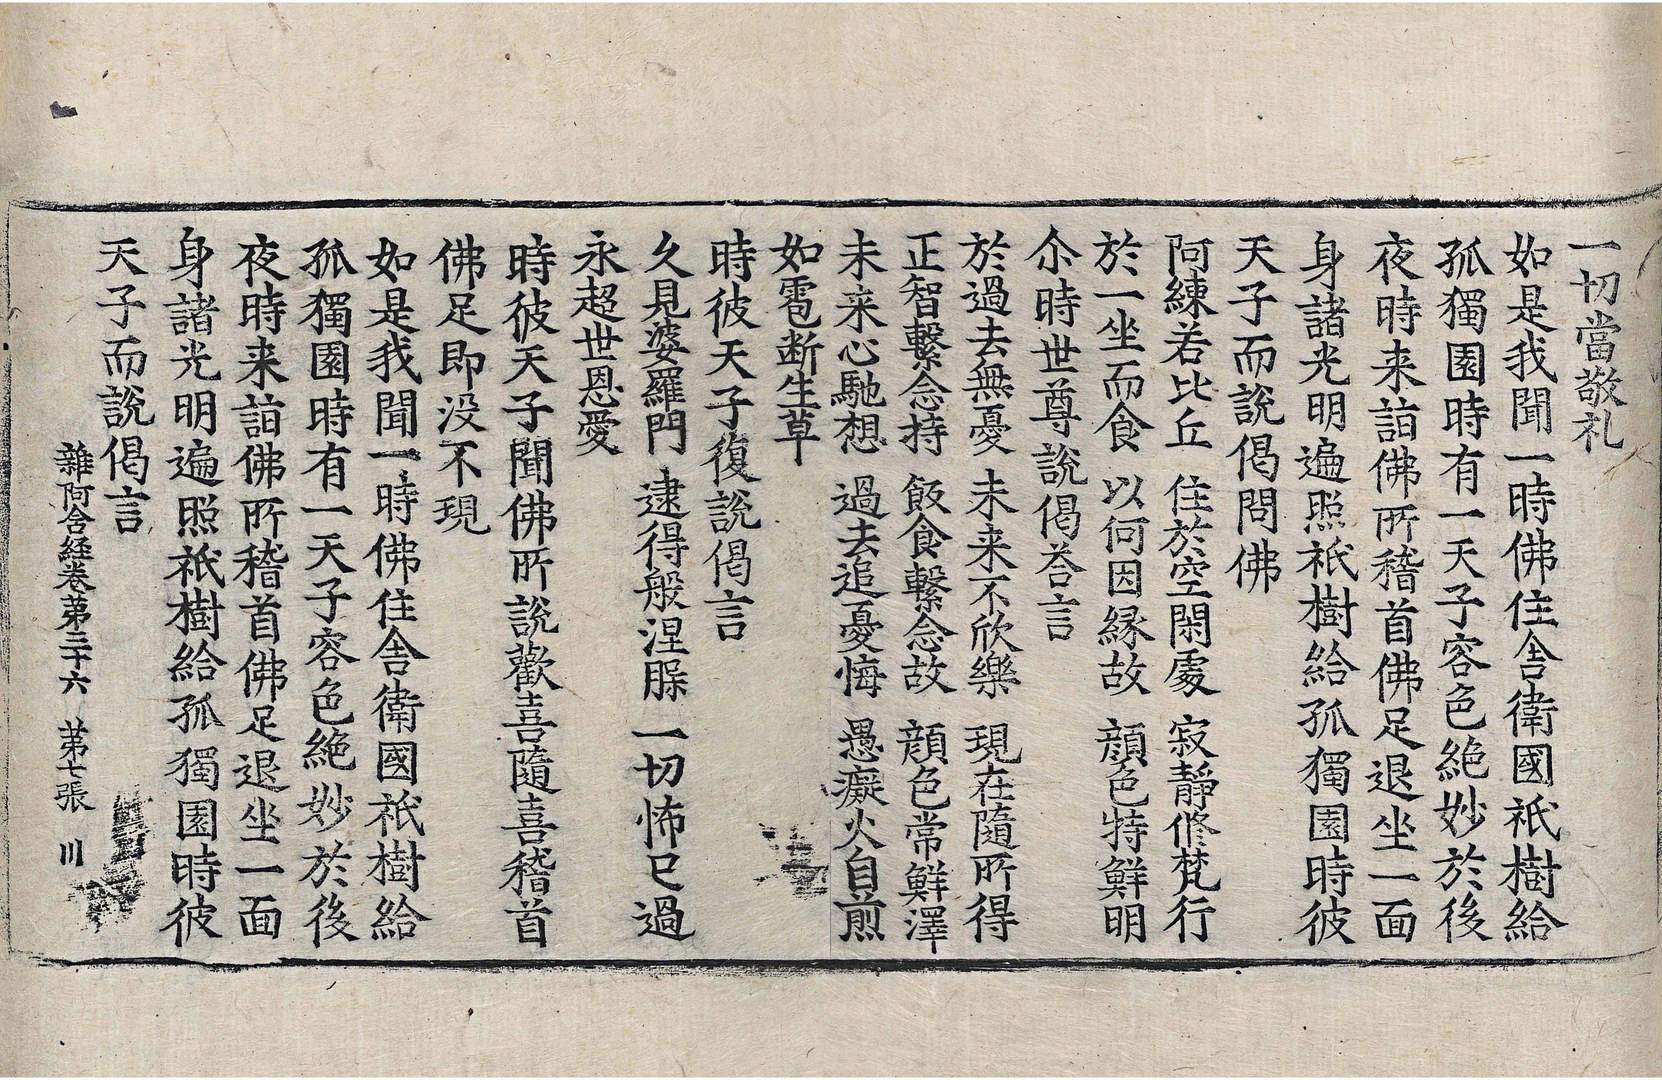 一切當敬礼
如是我聞一時佛住舎衛國祇樹給
孤獨園時有一天子容色絶妙於後
夜時来詣佛所稽首佛足退坐一面
身諸光明遍照祇樹給孤獨園時彼
天子而說偈問佛
阿練若比丘 住於空閑處 寂靜修梵行
於一坐而食 以何因縁故 顔色特鮮明
尒時世尊說偈荅言
於過去無憂 未来不欣樂 現在隨所得
正智繫念持 飯食繫念故 顔色常鮮澤
未来心馳想 過去追憂悔 愚癡火自煎
如雹断生草
時彼天子復說偈言
久見婆羅門 逮得般涅槃 一切怖已過
永超世恩愛
時彼天子聞佛所說歡喜隨喜稽首
佛足即没不現
如是我聞一時佛住舎衛國祇樹給
孤獨園時有一天子容色絶妙於後
夜時来詣佛所稽首佛足退坐一面
身諸光明遍照祇樹給孤獨園時彼
天子而說偈言
雜阿含経卷苐三十六 苐七張 川